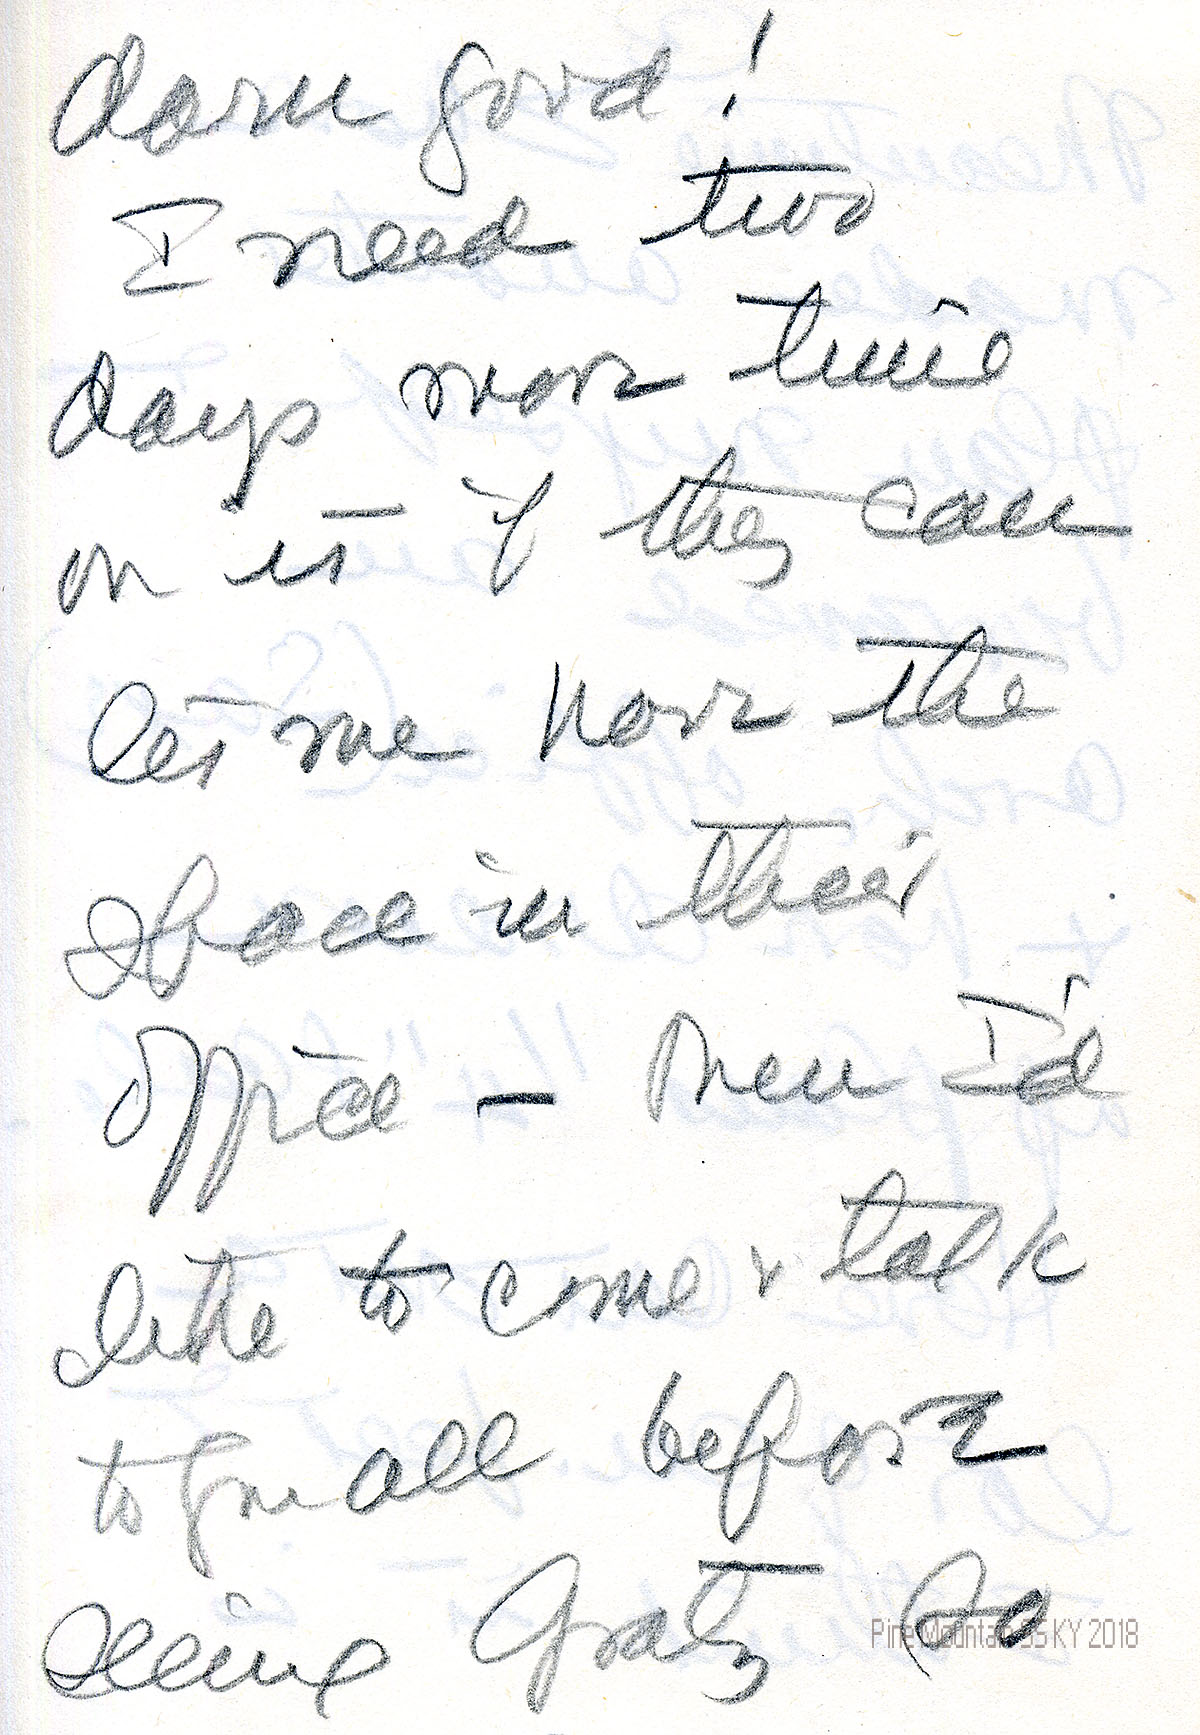 darn good!
I need two
days more time
on it — if they can
let me have the
space in their
office — Then I'd
like to come & talk
to you all before
seeing Gratz Co
Pine Mountain SS KY 2018